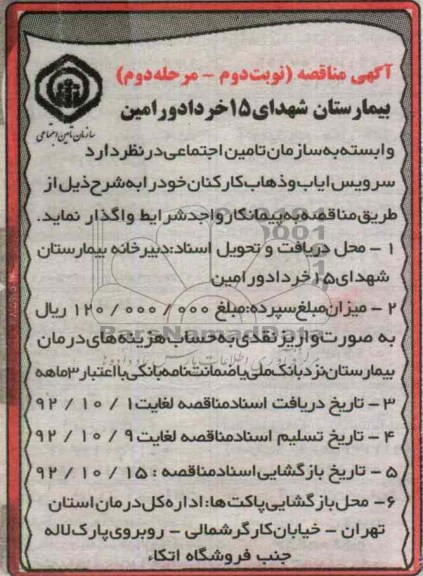 آگهی مناقصه (نوبت دوم - مرحله دوم)
بیمارستان شهدای ۱۵ خرداد ورامین
سازمان تامین اجتماعی
وابسته به سازمان تامین اجتماعی در نظر دارد
سرویس ایاب و ذهاب کارکنان خود را به شرح ذیل از
طریق مناقصه به پیمانکار واجد شرایط واگذار نماید.
۱ - محل دریافت و تحویل اسناد: دبیرخانه بیمارستان
شهدای ۱۵ خرداد ورامین
۲ - میزان مبلغ سپرده: مبلغ ۰۰۰ / ۰۰۰ / ۱۲۰ ریال
به صورت واریز نقدی به حساب هزینه های درمان
ParsNamadData
بیمارستان نزد بانک ملی یا ضمانت نامه بانکی با اعتبار ۳ ماهه
۳ - تاریخ دریافت اسناد مناقصه لغایت ۱ / ۱۰ / ۹۲
۴ - تاریخ تسلیم اسناد مناقصه لغایت ۹ / ۱۰ / ۹۲
۵ - تاریخ بازگشایی اسناد مناقصه : ۱۵ / ۱۰ / ۹۲
۶ - محل بازگشایی پاکت ها: اداره کل درمان استان
تهران - خیابان کارگر شمالی - روبروی پارک لاله
جنب فروشگاه اتکاء